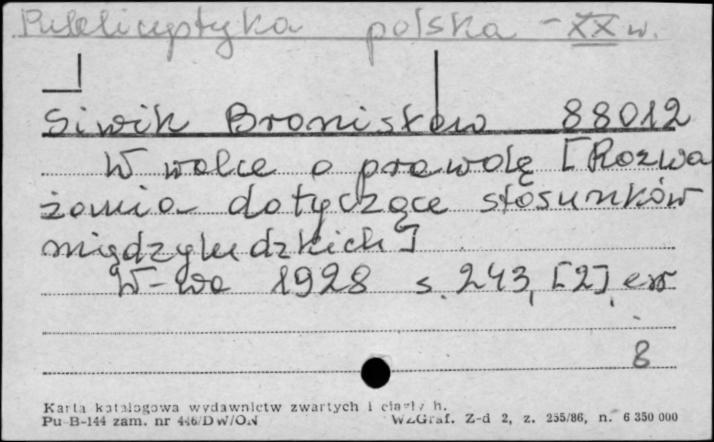 Publicystyka polska - XX w.
Siwik Bronisław 88012
W walce o prawdę [Rozwa
żania dotyczące stosunków
międzyludzkich]
W-wa 1928 s. 243, [2], err
8
Karta katalogowa wydawnictw zwartych i ciągłych.
Pu-B-144 zam. nr 446/DW/ON WZGraf. Z-d 2, z. 255/86, n. 6 350 000